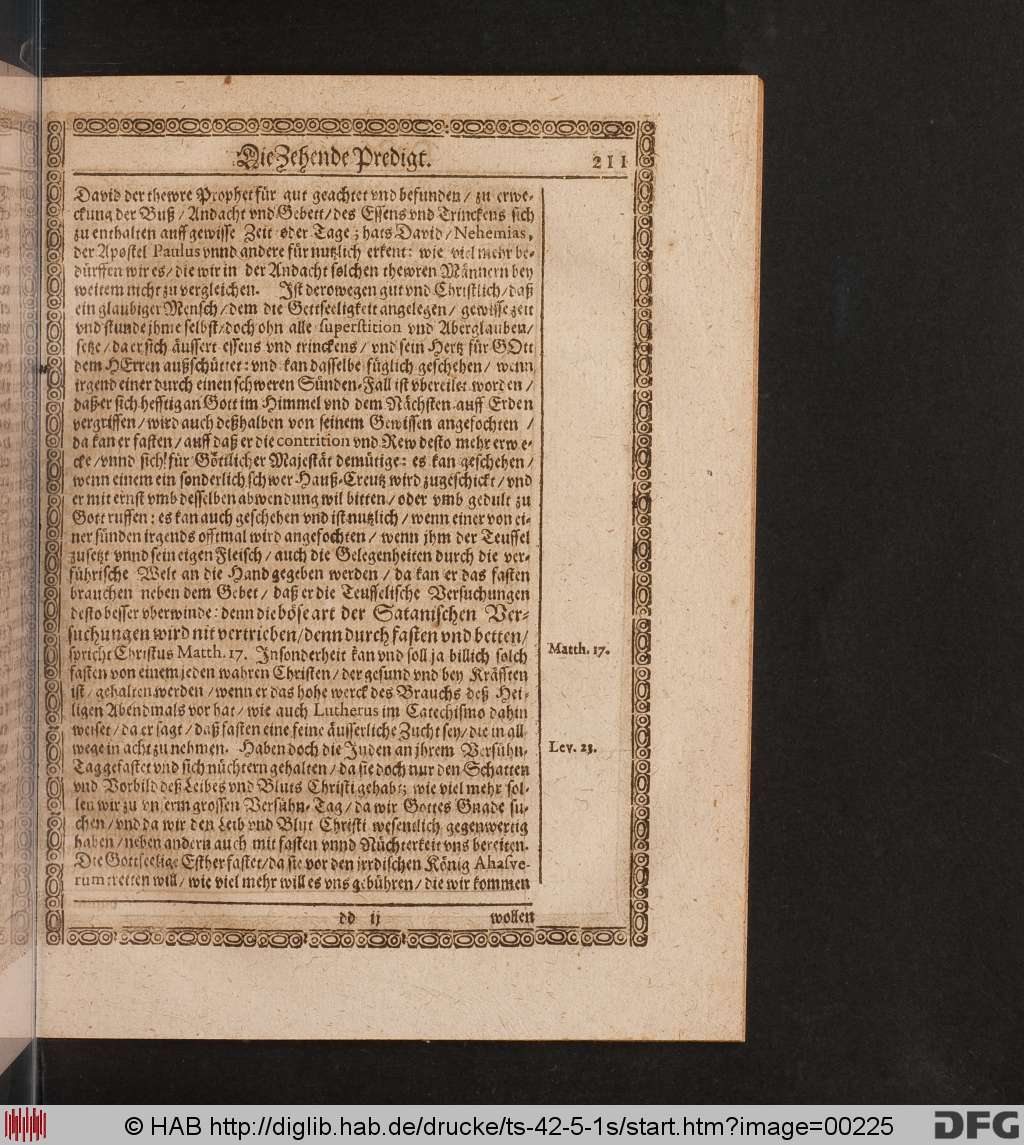 Die Zehende Predigt. 211
David der thewre Prophet für gut geachtet vnd befunden / zu erwe-
ckung der Buß / Andacht vnd Gebett / des Essens vnd Trinckens sich
zu enthalten auff gewisse Zeit oder Tage ; hats David / Nehemias,
der Apostel Paulus vnnd andere für nutzlich erkent: wie viel mehr be-
dürffen wir es / die wir in der Andacht solchen thewren Männern bey
weitem nicht zu vergleichen. Ist derowegen gut vnd Christlich / daß
ein glaubiger Mensch / dem die Gottseeligkeit angelegen / gewisse zeit
vnd stunde jhme selbst / doch ohn alle superstition vnd Aberglauben /
setze / da er sich äussert essens vnd trinckens / vnd sein Hertz für GOtt
dem HErren außschüttet : vnd kan dasselbe füglich geschehen / wenn
irgend einer durch einen schweren Sünden-Fall ist vbereilet worden /
daß er sich hefftig an Gott im Himmel vnd dem Nächsten auff Erden
vergriffen / wird auch deßhalben von seinem Gewissen angefochten /
da kan er fasten / auff daß er die contrition vnd Rew desto mehr erwe-
cke / vnnd sich für Göttlicher Majestät demütige : es kan geschehen /
wenn einem ein sonderlich schwer Hauß-Creutz wird zugeschickt / vnd
er mit ernst vmb desselben abwendung wil bitten / oder vmb gedult zu
Gott ruffen : es kan auch geschehen vnd ist nutzlich / wenn einer von ei-
ner sünden irgends offtmal wird angefochten / wenn jhm der Teuffel
zusetzt vnnd sein eigen Fleisch / auch die Gelegenheiten durch die ver-
führische Welt an die Hand gegeben werden / da kan er das fasten
brauchen neben dem Gebet / daß er die Teuffelische Versuchungen
desto besser vberwinde : denn die böse art der Satanischen Ver-
suchungen wird nit vertrieben / denn durch fasten vnd betten /
spricht Christus Matth. 17. Insonderheit kan vnd soll ja billich solch
Matth. 17.
fasten von einem jeden wahren Christen / der gesund vnd bey Kräfften
ist / gehalten werden / wenn er das hohe werck des Brauchs deß Hei-
ligen Abendmals vor hat / wie auch Lutherus im Catechismo dahin
weiset / da er sagt / daß fasten eine feine äusserliche Zucht sey / die in all
wege in acht zu nehmen. Haben doch die Juden an jhrem Versühn-
Lev. 23.
Tag gefastet vnd sich nüchtern gehalten / da sie doch nur den Schatten
vnd Vorbild deß Leibes vnd Bluts Christi gehabt ; wie viel mehr sol-
len wir zu vnserm grossen Versühn-Tag / da wir Gottes Gnade su-
chen / vnd da wir den Leib vnd Blut Christi wesentlich gegenwertig
haben / neben andern auch mit fasten vnnd Nüchterkeit vns bereiten.
Die Gottseelige Esther fastet / da sie vor den jrrdischen König Ahasve-
rum tretten will / wie viel mehr will es vns gebühren / die wir kommen
dd ij wollen
© HAB http://diglib.hab.de/drucke/ts-42-5-1s/start.htm?image=00225
DFG